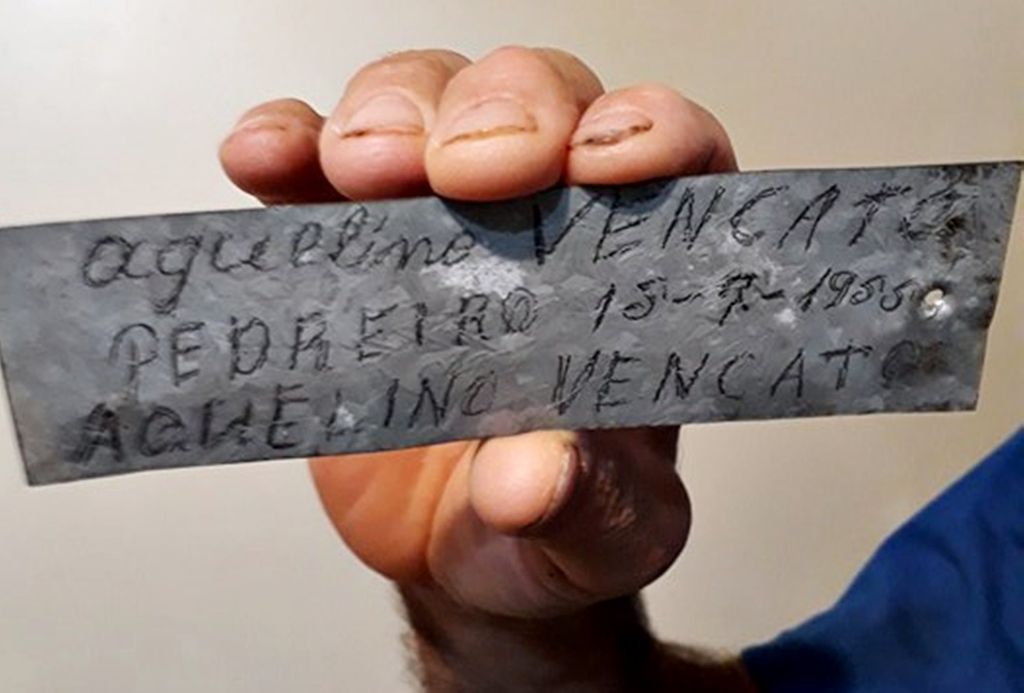 aquelino VENCATO
PEDREIRO 15-7-1955
AQUELINO VENCATO